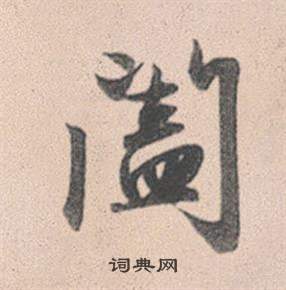 阖
词典网